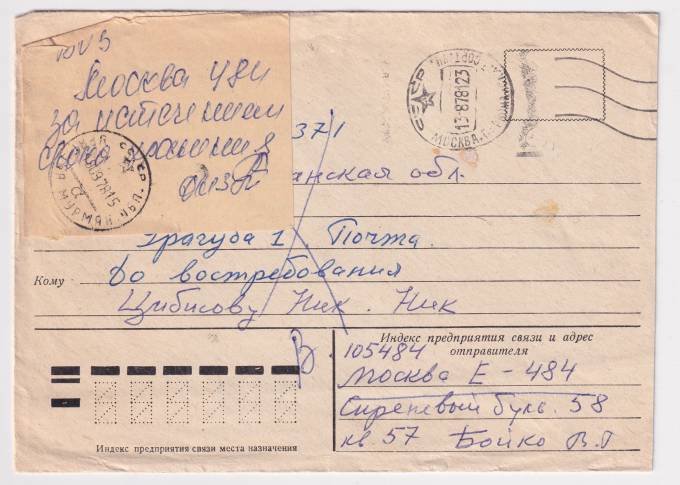 Москва 484
за истечением
срока хранения
СССР
МОСКВА
13-878123
СССР
МУРМАН
371
нская обл.
Трагуба 1 Почта
Кому
до востребования
Цибисову Ник. Ник
Индекс предприятия связи и адрес
отправителя
В.
105484
Москва Е-484
Сиреневый бульв. 58
кв 57 Бойко В.Г
Индекс предприятия связи места назначения